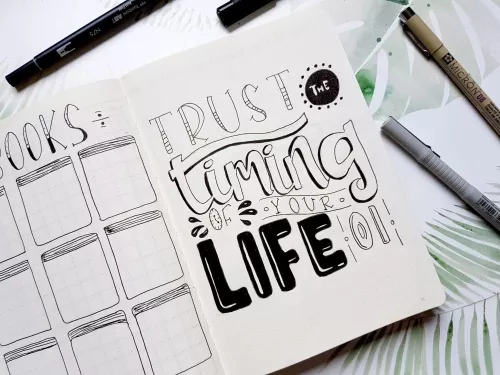 OOKS
TRUST THE
timing
OF YOUR
LIFE 01
MICRON